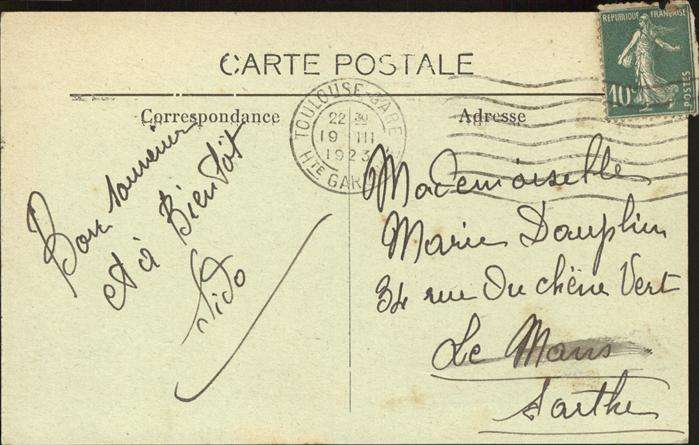 CARTE POSTALE
Correspondance
Adresse
REPUBLIQUE FRANÇAISE
POSTES
10c
TOULOUSE-GARE
22 30
19 III
1923
Hte GAR
Bon souvenir
et à Bientôt
Sido
Mademoiselle
Marie Dauphin
34 rue Du chêne Vert
Le Mans
Sarthe